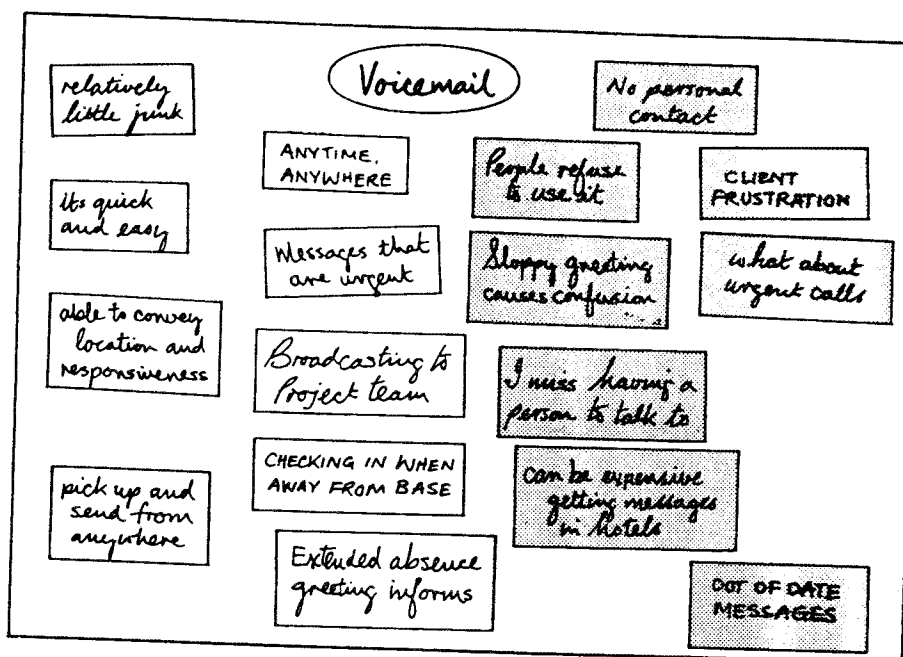 Voicemail
relatively
little junk
its quick
and easy
able to convey
location and
responsiveness
pick up and
send from
anywhere
ANYTIME,
ANYWHERE
Messages that
are urgent
Broadcasting to
Project team
CHECKING IN WHEN
AWAY FROM BASE
Extended absence
greeting informs
No personal
contact
People refuse
to use it
Sloppy greeting
causes confusion
I miss having a
person to talk to
can be expensive
getting messages
in hotels
CLIENT
FRUSTRATION
what about
urgent calls
OUT OF DATE
MESSAGES